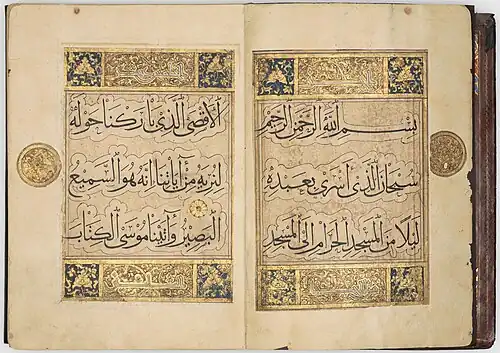 بسم الله الرحمن الرحيم
سبحان الذي اسرى بعبده
ليلا من المسجد الحرام الى المسجد
الأقصى الذي باركنا حوله
لنريه من أياتنا انه هو السميع
البصير وأتينا موسى الكتاب